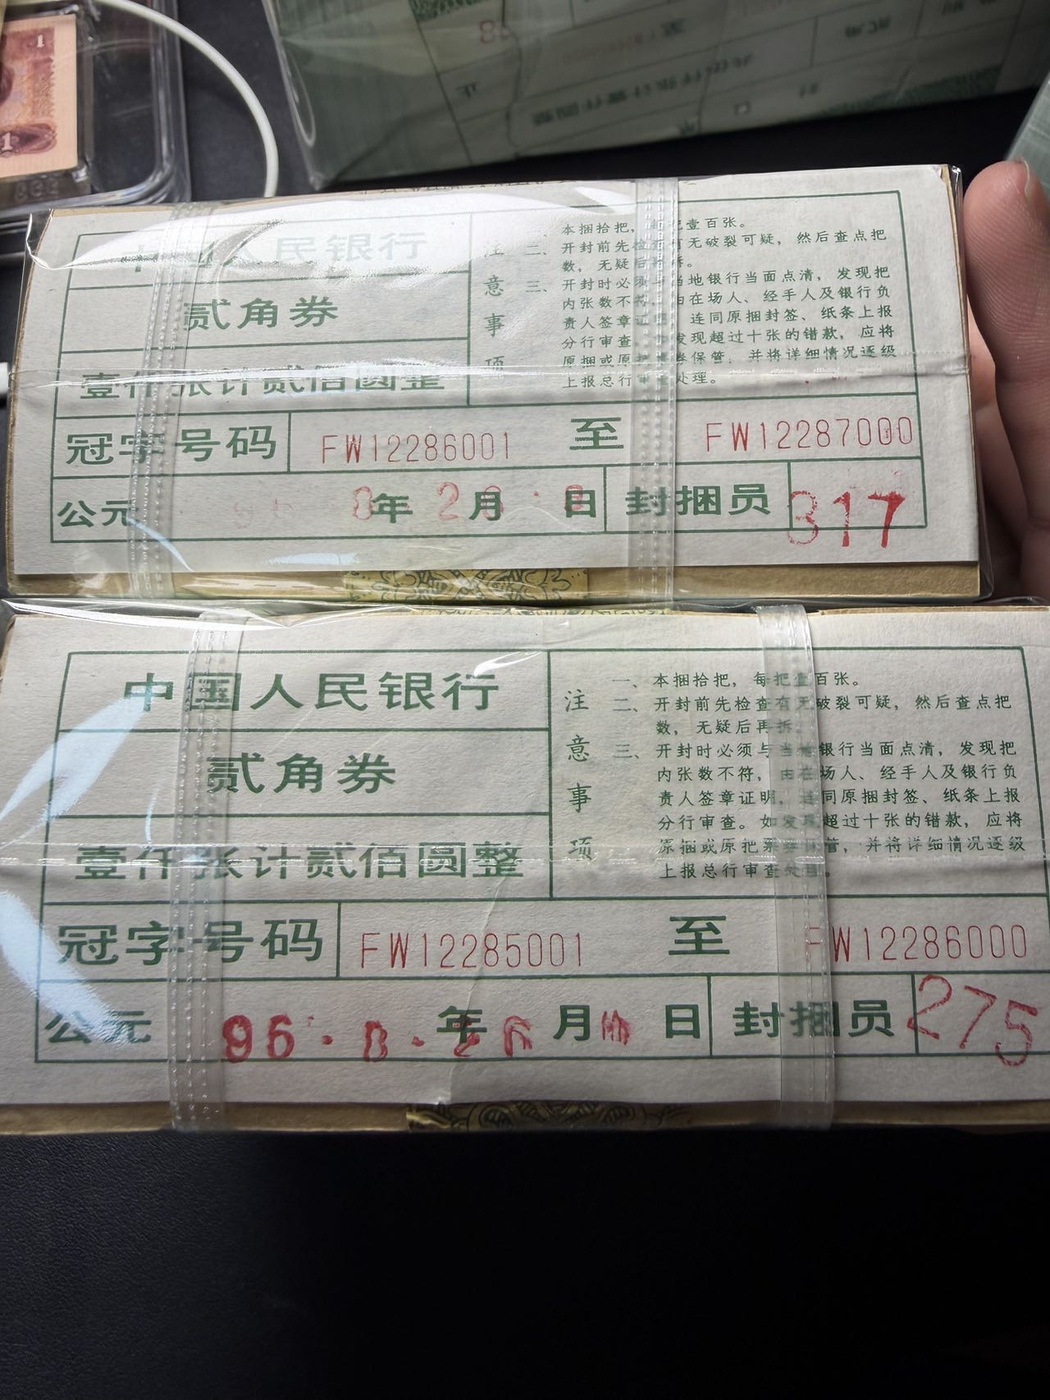 中国人民银行
贰角券
壹仟张计贰佰圆整
注意事项
本捆拾把，每把壹百张。
二、开封前先检查有无破裂可疑，然后查点把
数，无疑后再拆。
三、开封时必须与当地银行当面点清，发现把
内张数不符，由在场人、经手人及银行负
责人签章证明，连同原捆封签、纸条上报
分行审查。如发现超过十张的错款，应将
原捆或原把票券保管，并将详细情况逐级
上报总行审查处理。
冠字号码 FW12286001 至 FW12287000
公元 8年26月 日 封捆员 317
中国人民银行
贰角券
壹仟张计贰佰圆整
注意事项
一、本捆拾把，每把壹百张。
二、开封前先检查有无破裂可疑，然后查点把
数，无疑后再拆。
三、开封时必须与当地银行当面点清，发现把
内张数不符，由在场人、经手人及银行负
责人签章证明，连同原捆封签、纸条上报
分行审查。如发现超过十张的错款，应将
原捆或原把票券保管，并将详细情况逐级
上报总行审查处理。
冠字号码 FW12285001 至 FW12286000
公元 96·8·26 年 月 日 封捆员 275